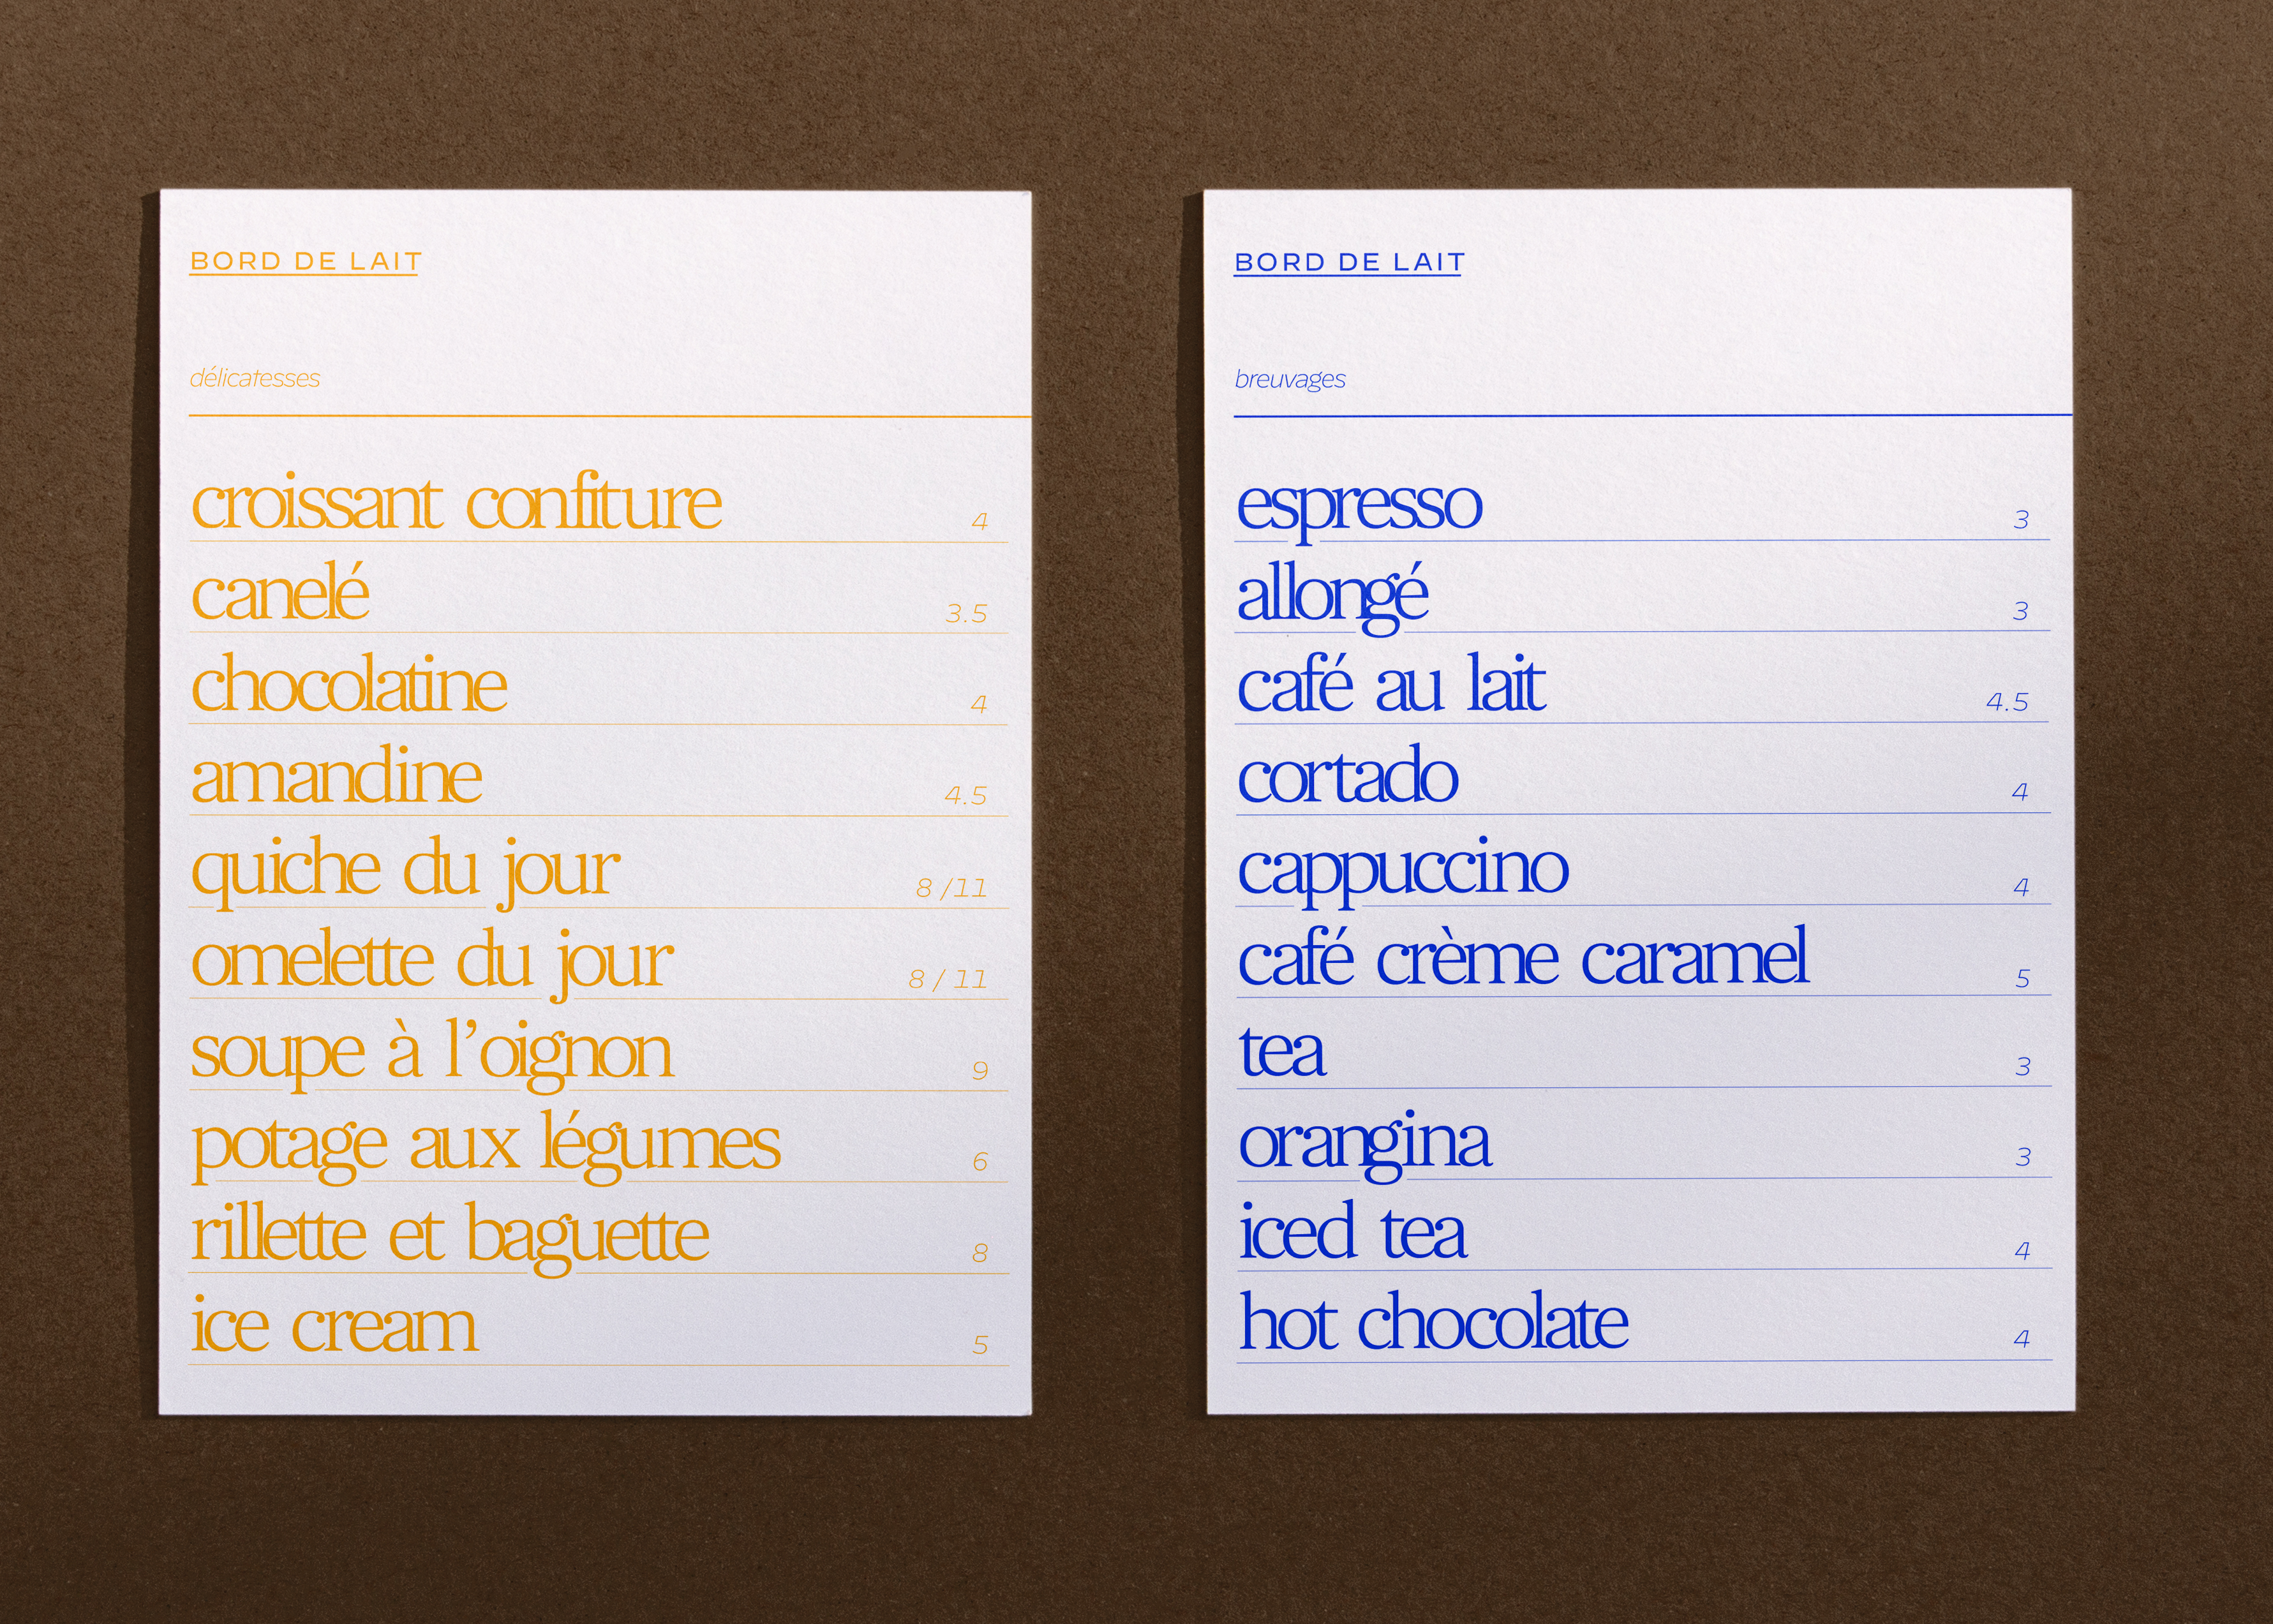 BORD DE LAIT
délicatesses
croissant confiture 4
canelé 3.5
chocolatine 4
amandine 4.5
quiche du jour 8 /11
omelette du jour 8 / 11
soupe à l’oignon 9
potage aux légumes 6
rillette et baguette 8
ice cream 5
BORD DE LAIT
breuvages
espresso 3
allongé 3
café au lait 4.5
cortado 4
cappuccino 4
café crème caramel 5
tea 3
orangina 3
iced tea 4
hot chocolate 4